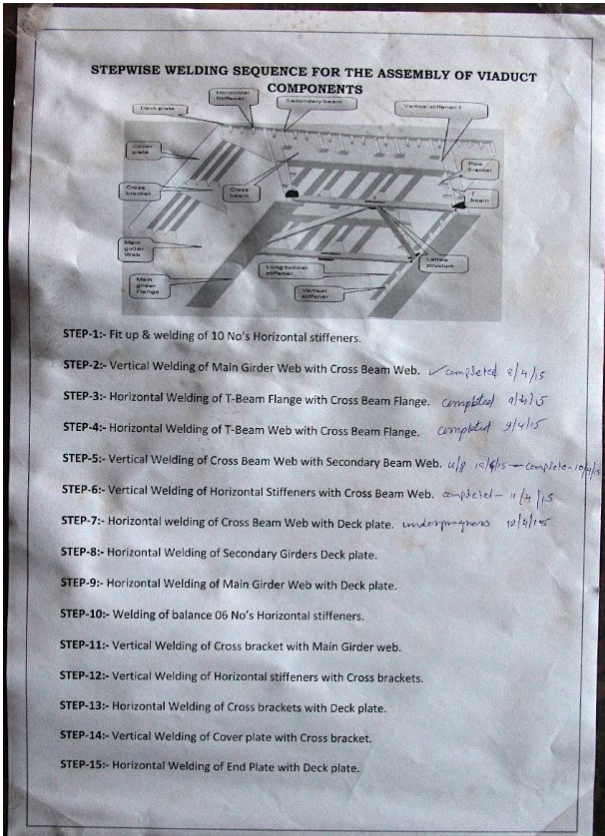 STEPWISE WELDING SEQUENCE FOR THE ASSEMBLY OF VIADUCT
COMPONENTS
Deck plate
Horizontal Stiffener
Secondary beam
Vertical stiffener
Cover plate
Pipe bracket
Cross bracket
Cross beam
T beam
Main girder Web
Longitudinal stiffener
Lattice structure
Main girder flange
Vertical stiffener
STEP-1:- Fit up & welding of 10 No's Horizontal stiffeners.
STEP-2:- Vertical Welding of Main Girder Web with Cross Beam Web. ✓ completed 8/4/15
STEP-3:- Horizontal Welding of T-Beam Flange with Cross Beam Flange. completed 9/4/15
STEP-4:- Horizontal Welding of T-Beam Web with Cross Beam Flange. completed 9/4/15
STEP-5:- Vertical Welding of Cross Beam Web with Secondary Beam Web. u/p — complete - 10/4/15
STEP-6:- Vertical Welding of Horizontal Stiffeners with Cross Beam Web. completed - 11/4/15
STEP-7:- Horizontal welding of Cross Beam Web with Deck plate. underprogress 12/4/15
STEP-8:- Horizontal Welding of Secondary Girders Deck plate.
STEP-9:- Horizontal Welding of Main Girder Web with Deck plate.
STEP-10:- Welding of balance 06 No's Horizontal stiffeners.
STEP-11:- Vertical Welding of Cross bracket with Main Girder web.
STEP-12:- Vertical Welding of Horizontal stiffeners with Cross brackets.
STEP-13:- Horizontal Welding of Cross brackets with Deck plate.
STEP-14:- Vertical Welding of Cover plate with Cross bracket.
STEP-15:- Horizontal Welding of End Plate with Deck plate.